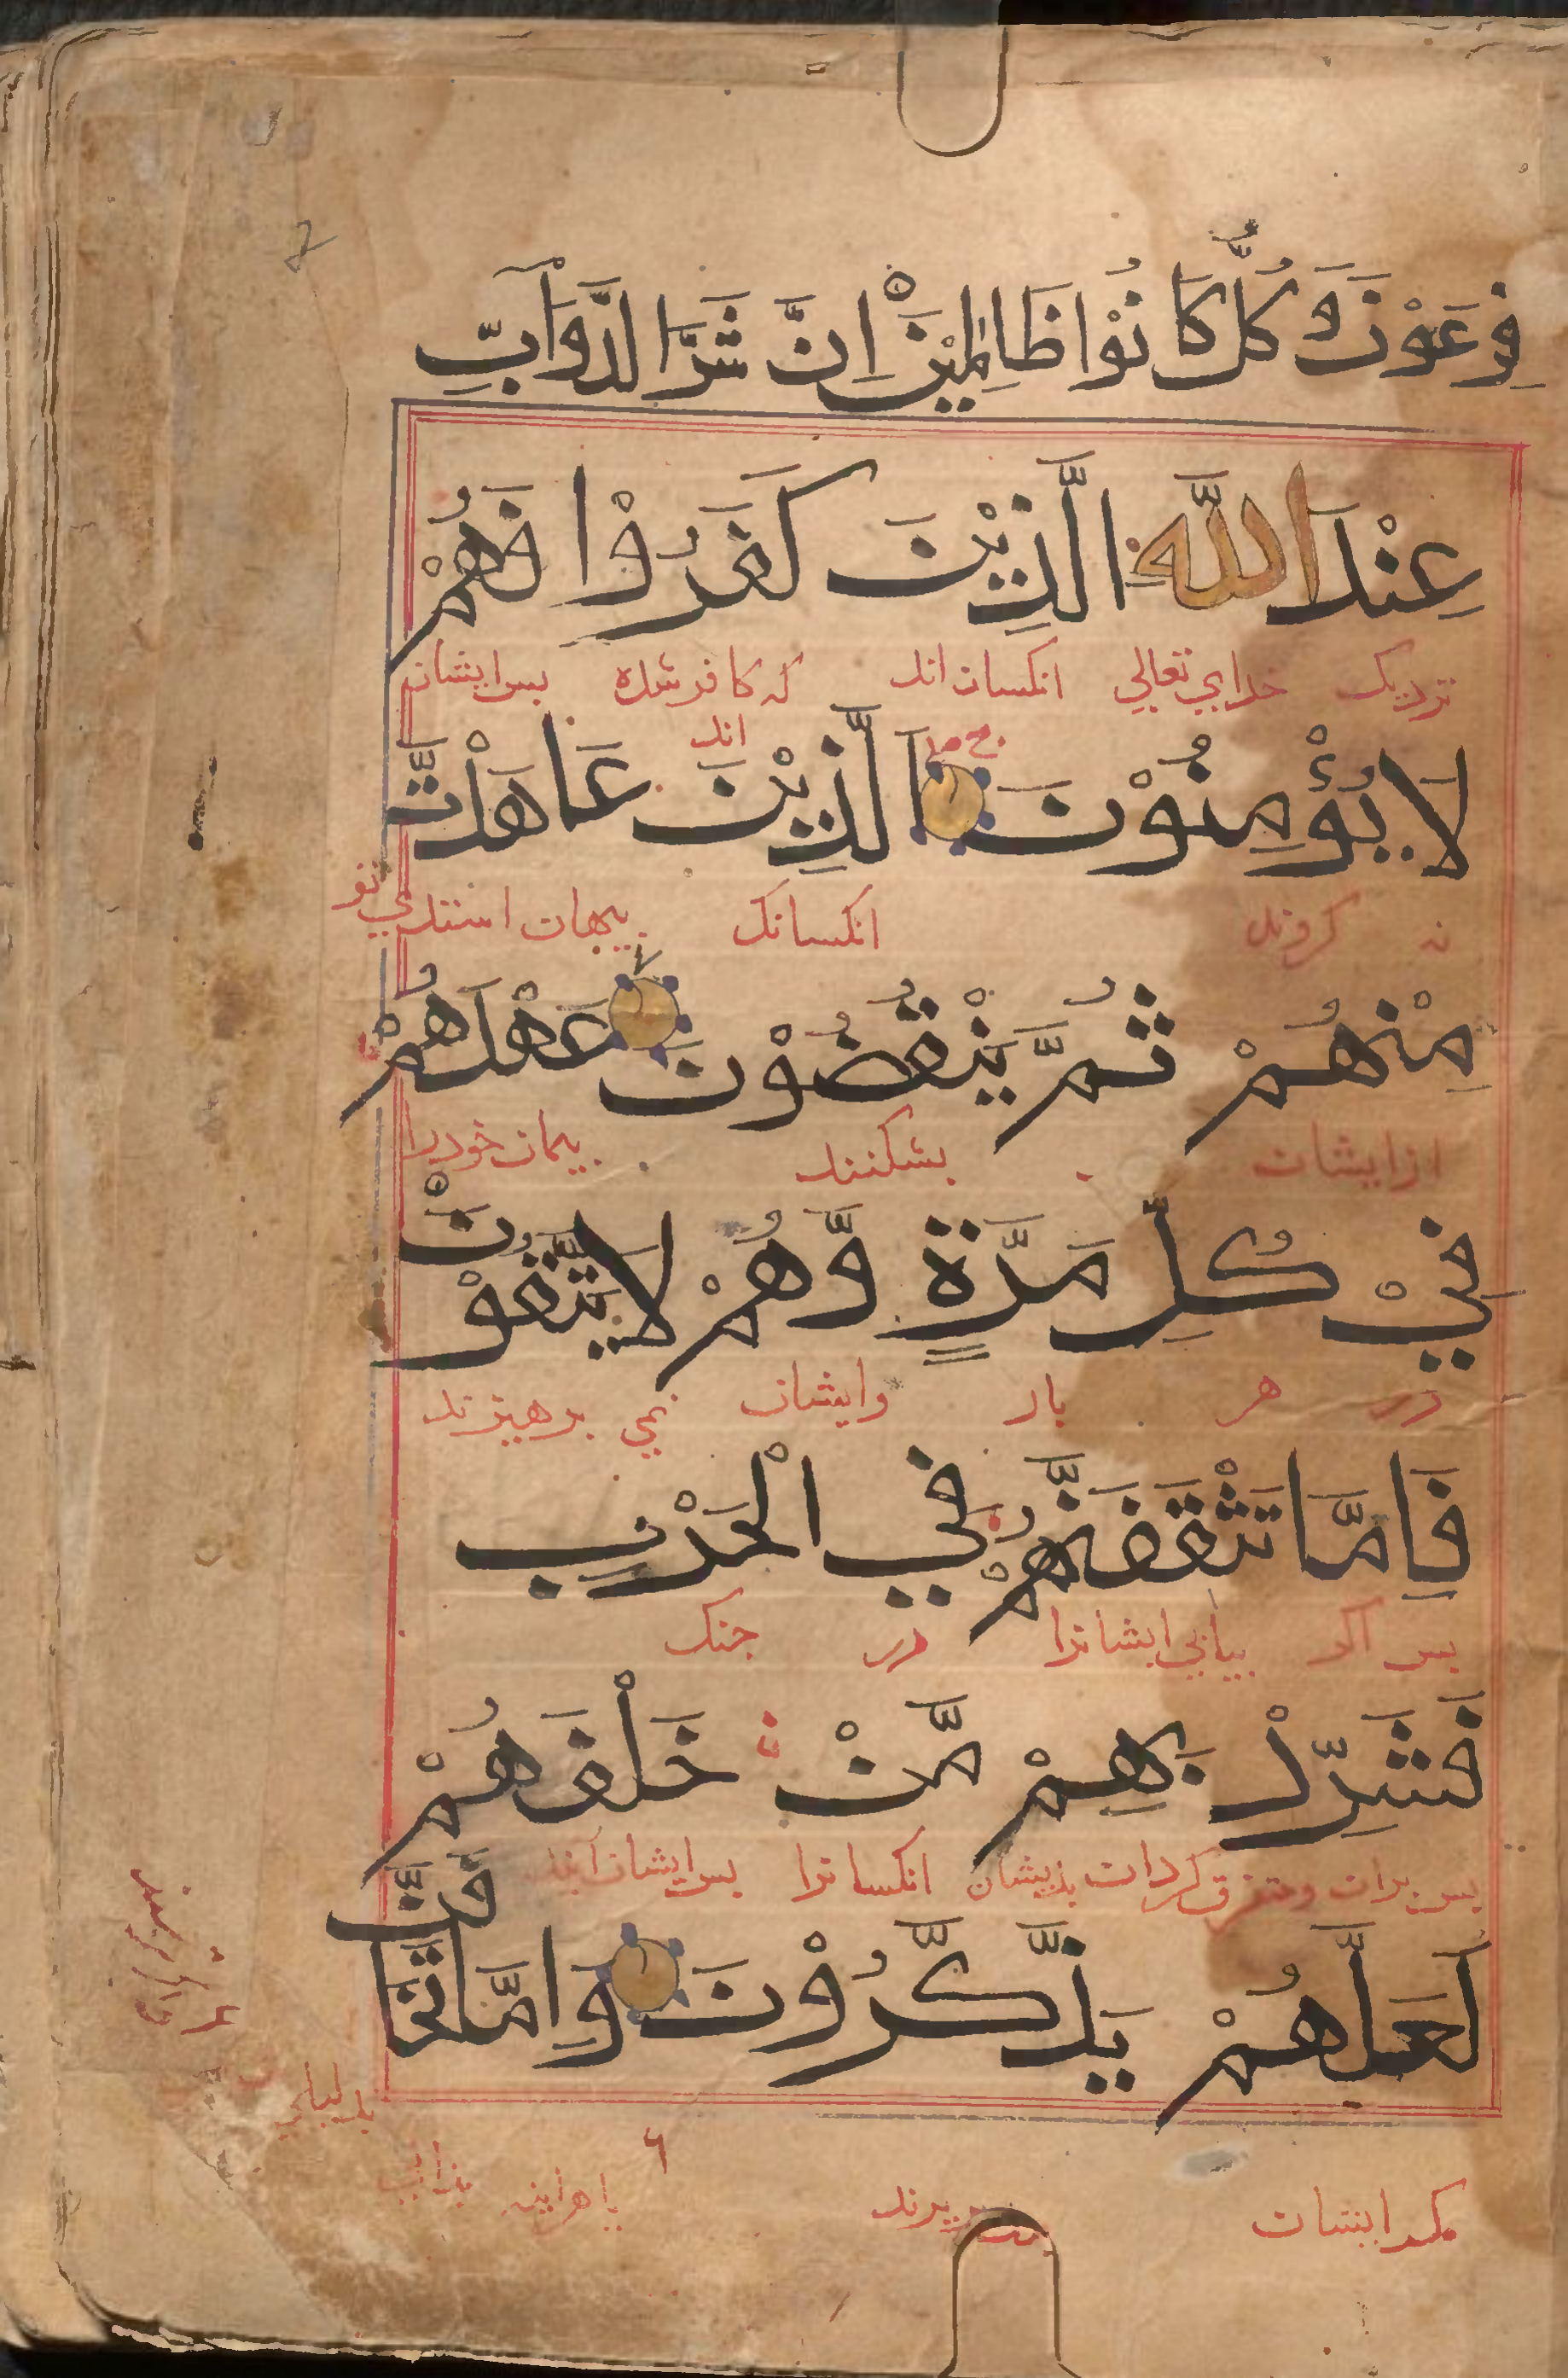 فِرْعَوْنَ وَكُلٌّ كَانُوْا ظَالِمِيْنَ اِنَّ شَرَّ الدَّوَآبِّ
عِنْدَ اللّٰهِ الَّذِيْنَ كَفَرُوْا فَهُمْ
نزديک خداي تعالي انکسان اند که کافر شده بس ايشان
اند
لَا يُؤْمِنُوْنَ اَلَّذِيْنَ عَاهَدْتَّ
نه کروند انکسانک بيمان استدي تو
مِنْهُمْ ثُمَّ يَنْقُضُوْنَ عَهْدَهُمْ
از ايشان بشکنند بيمان خود را
فِيْ كُلِّ مَرَّةٍ وَّهُمْ لَا يَتَّقُوْنَ
در هر بار وايشان نمي برهيزند
فَاِمَّا تَثْقَفَنَّهُمْ فِي الْحَرْبِ
بس اکر بيابي ايشانرا در جنک
فَشَرِّدْ بِهِمْ مَّنْ خَلْفَهُمْ
بس بران ومتفرق کردان بديشان انکسانرا بس ايشان آيند
لَعَلَّهُمْ يَذَّكَّرُوْنَ وَاِمَّا تَخَافَنَّ
مکر ايشان پند بيرند يا هراينه